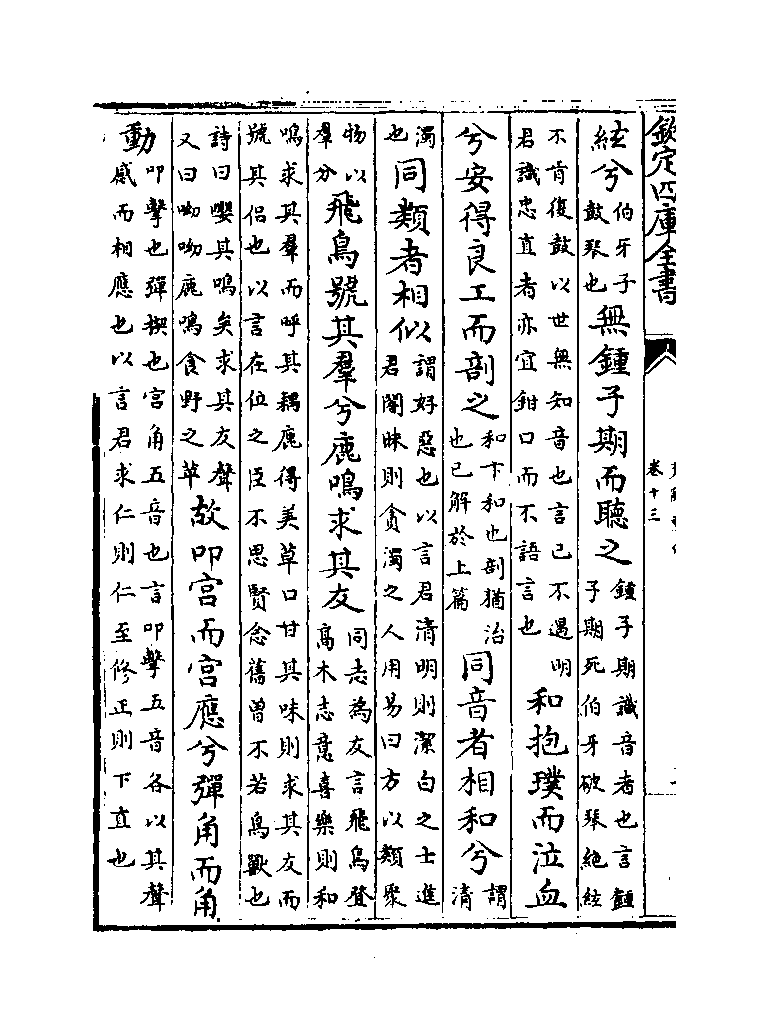 欽定四庫全書
卷十三
絃兮伯牙子鼓琴也無鍾子期而聽之鍾子期識音者也言鍾子期死伯牙破琴絶絃
不肯復鼓以世無知音也言已不遇明君識忠直者亦宜鉗口而不語言也和抱璞而泣血
兮安得良工而剖之和卞和也剖猶治也已解於上篇同音者相和兮謂清
濁也同類者相似謂好惡也以言君清明則潔白之士進君闇昧則貪濁之人用易曰方以類聚
物以羣分飛鳥號其羣兮鹿鳴求其友同志為友言飛鳥登高木志意喜樂則和
鳴求其羣而呼其耦鹿得美草口甘其味則求其友而號其侣也以言在位之臣不思賢念舊曽不若鳥獸也
詩曰嚶其鳴矣求其友聲又曰呦呦鹿鳴食野之苹故叩宫而宫應兮彈角而角
動叩擊也彈揳也宫角五音也言叩擊五音各以其聲感而相應也以言君求仁則仁至修正則下直也